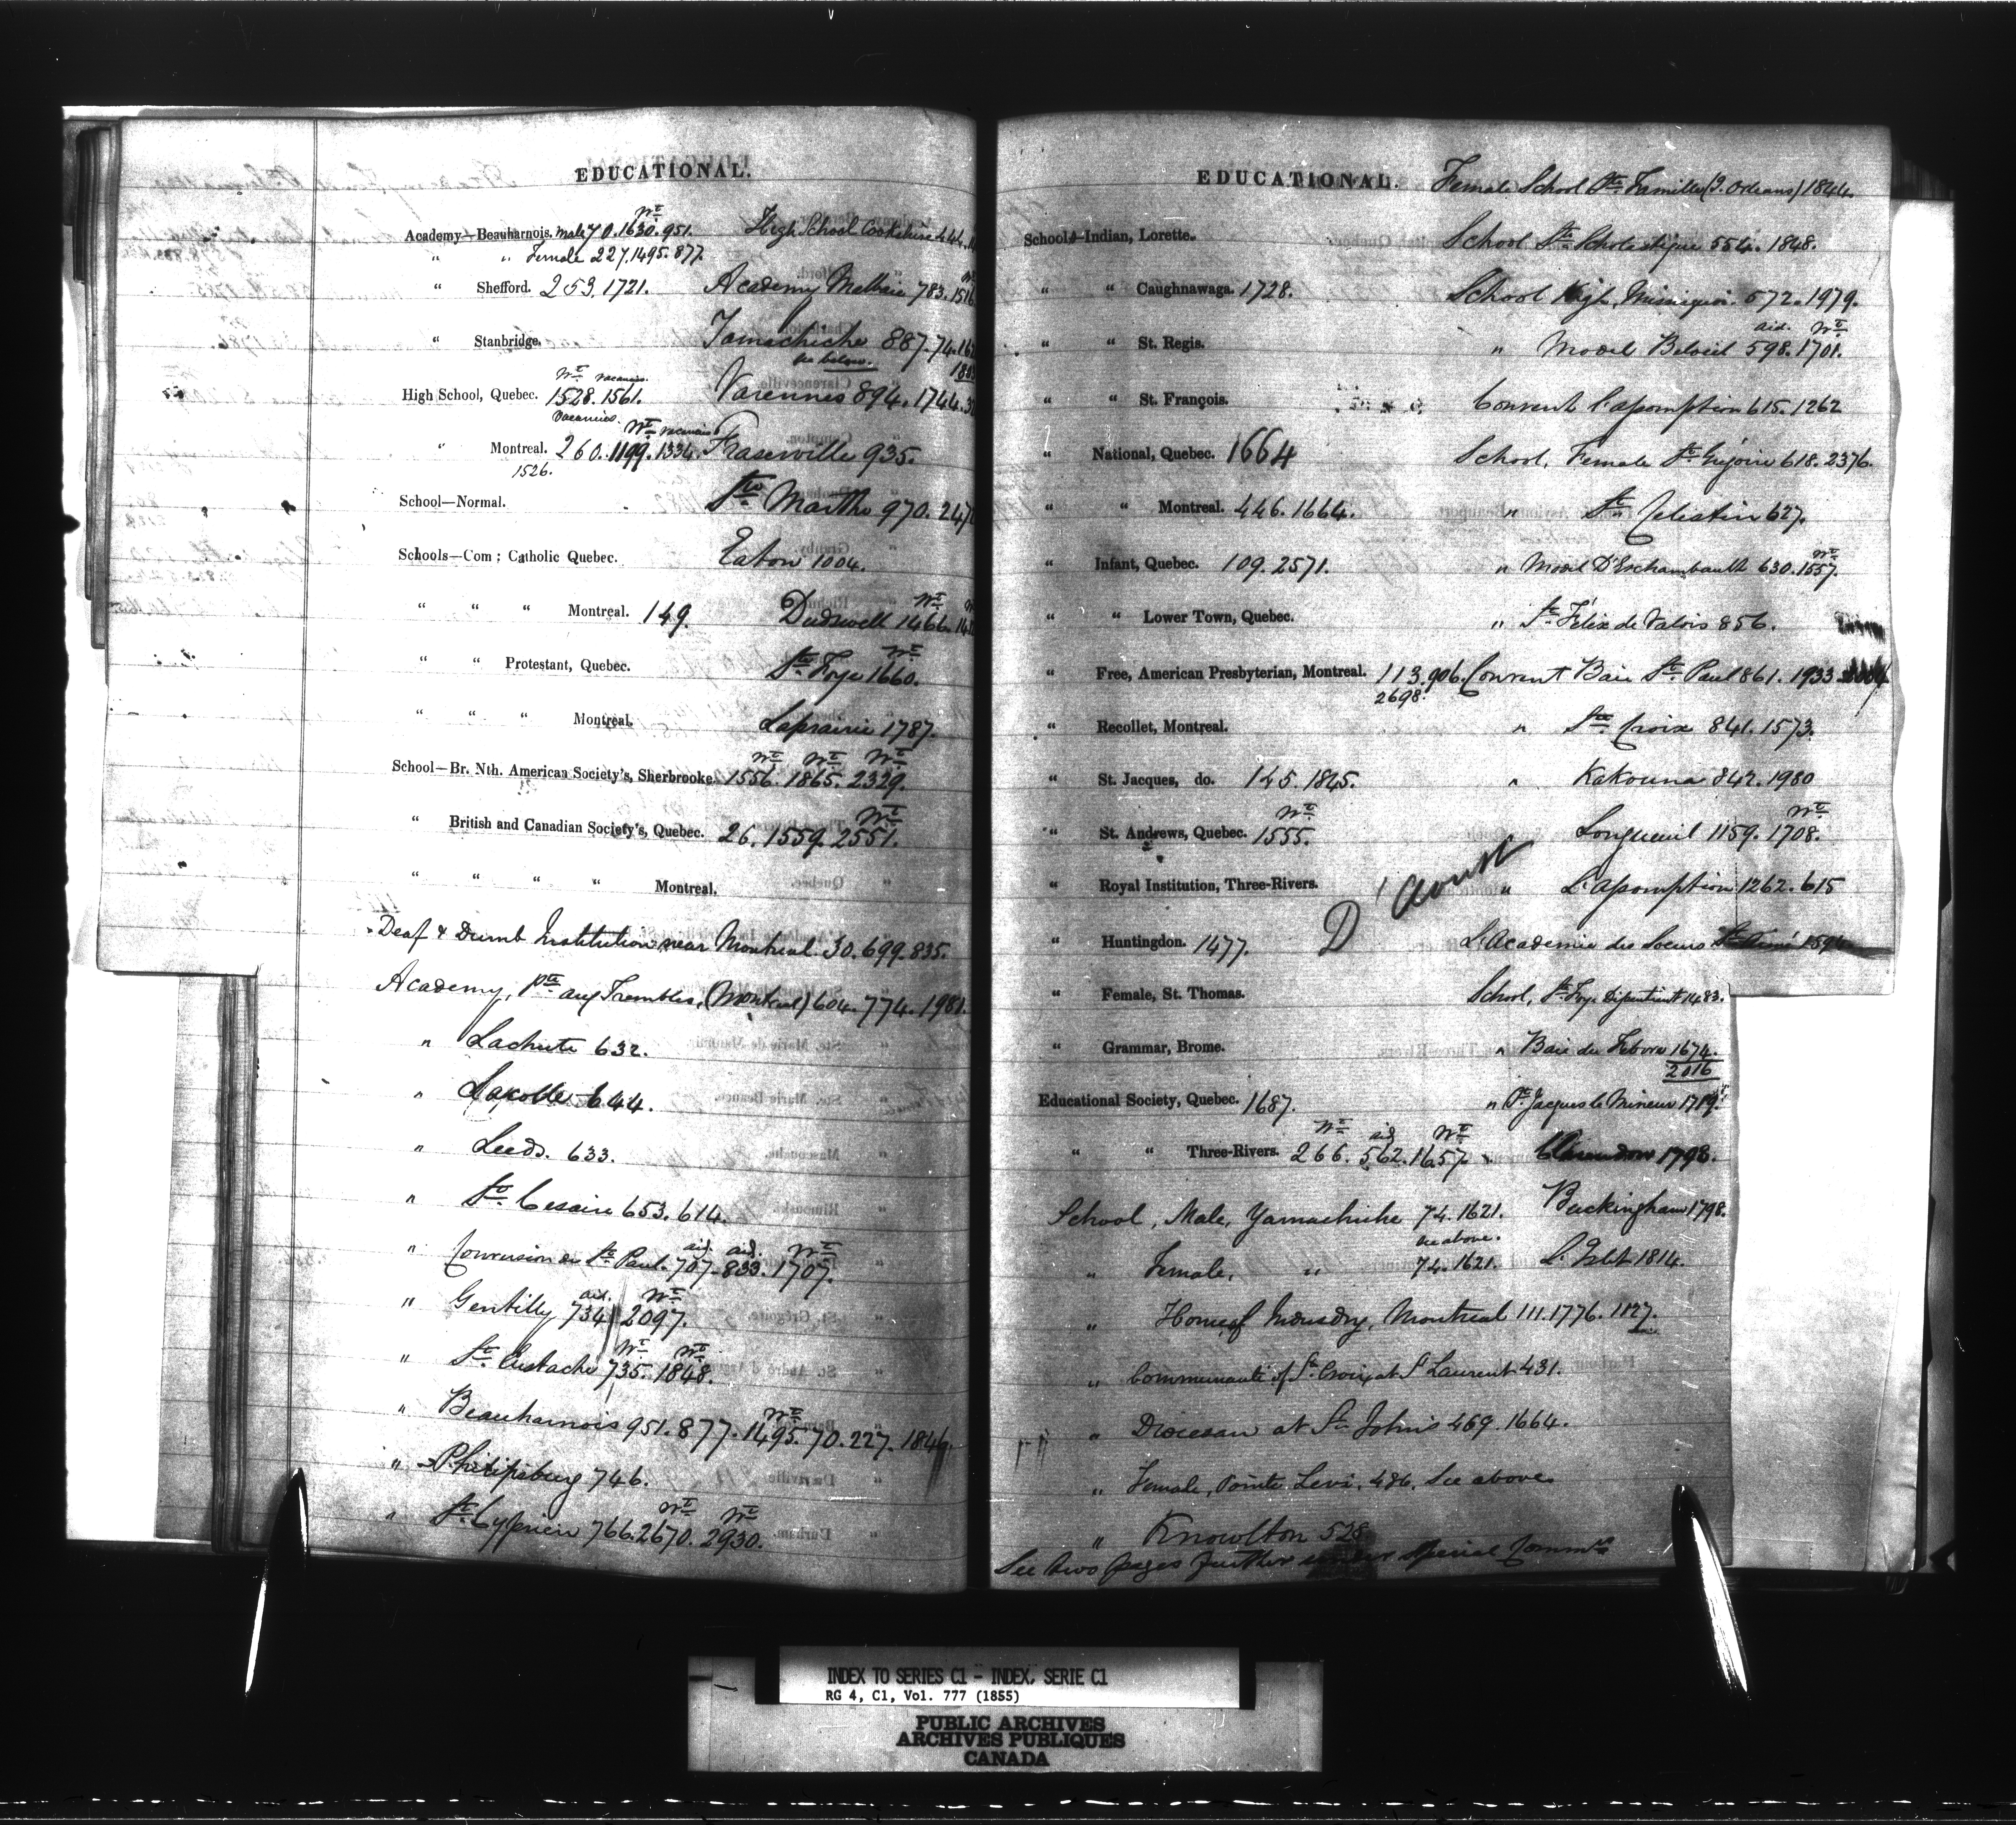 EDUCATIONAL.
Academy—Beauharnois. Male 70. 1630. 951.
" " Female 227. 1495. 877.
" Shefford. 253. 1721.
" Stanbridge.
High School, Quebec. 1528. 1561.
" Montreal. 260. 1199. 1334.
1526.
School—Normal.
Schools—Com; Catholic Quebec.
" " " Montreal. 149.
" " Protestant, Quebec.
" " " Montreal.
School—Br. Nth. American Society's, Sherbrooke. 1556. 1865. 2329.
" British and Canadian Society's, Quebec. 26. 1559. 2551.
" " " " Montreal.
High School Cookshire 444.
Academy Malbaie 783. 1516
Yamachiche 887. 74.
see below.
Varennes 894. 1744.
Fraserville 935.
Ste Marthe 970.
Eaton 1004.
Dudswell 1466.
Ste Foye 1660.
Laprairie 1787.
Deaf & Dumb Institution near Montreal 30. 699. 835.
Academy, Pte aux Trembles, (Montreal) 604. 774. 1981.
" Lachute 632.
" Lacolle 644.
" Leeds. 633.
" St. Cesaire 653. 614.
" Conversion de St. Paul. 707. 833. 1707.
" Gentilly 734 2097.
" St. Eustache 735. 1848.
" Beauharnois 951. 877. 1495. 70. 227. 1846.
" Philipsburg 746.
" St. Cyprien 766. 2670. 2930.
EDUCATIONAL.
Schools—Indian, Lorette.
" " Caughnawaga. 1728.
" " St. Regis.
" " St. François.
" National, Quebec. 1664
" " Montreal. 446. 1664.
" Infant, Quebec. 109. 2571.
" " Lower Town, Quebec.
" Free, American Presbyterian, Montreal. 113. 906.
2698.
" Recollet, Montreal.
" St. Jacques, do. 145. 1845.
" St. Andrews, Quebec. 1555.
" Royal Institution, Three-Rivers.
" Huntingdon. 1477.
" Female, St. Thomas.
" Grammar, Brome.
Educational Society, Quebec. 1687.
" " Three-Rivers. 266. 562. 1657
School, Male, Yamachiche 74. 1621.
see above.
" Female, " 74. 1621.
" Home of Industry, Montreal 111. 1776. 1127.
" Communauté of St. Croix at St Laurent 431.
" Diocesan at St. Johns 469. 1664.
" Female, Pointe Levi. 486. See above
" Knowlton 528
See two pages further under Special Comms
Female School Ste. Famille (I. Orleans) 1844.
School Ste Scholastique 554. 1848.
School High, Missisquoi. 572. 1979.
" Model Beloeil 598. 1701.
Convent L'assomption 615. 1262
School, Female St. Grégoire 618. 2376.
" St. Celestin 627.
" Model D'Eschambault 630. 1557.
" St. Félix de Valois 856.
Convent Baie St. Paul 861. 1933
" Ste Croix 841. 1573.
" Kakouna 842. 1980
Longueuil 1159. 1708.
" L'assomption 1262. 615
D'Aoust
L'Academie des Soeurs St. Aimé
School, Ste. Foye Dissentient 1483.
" Baie du Febvre 1674.
2016
" St. Jacques le Mineur 1719.
" Clarendon 1798.
Buckingham 1798.
L'Islet 1814.
INDEX TO SERIES C1 - INDEX, SERIE C1
RG 4, C1, Vol. 777 (1855)
PUBLIC ARCHIVES
ARCHIVES PUBLIQUES
CANADA